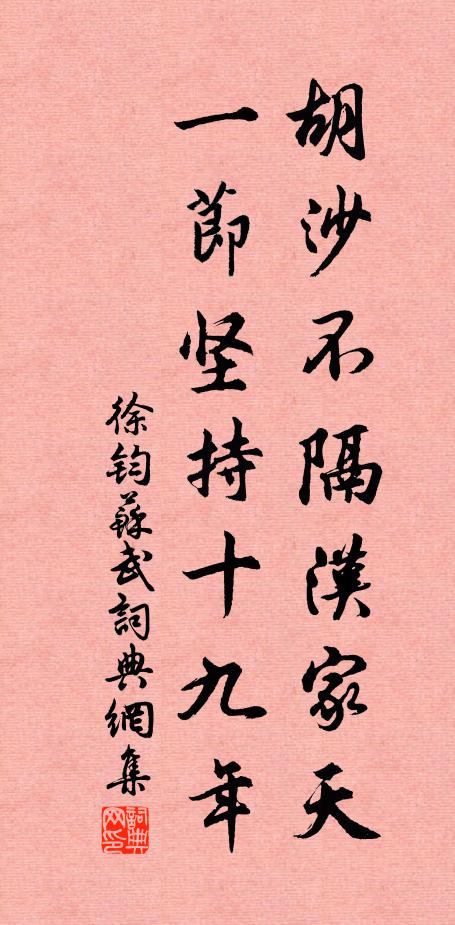 胡沙不隔漢家天
一節坚持十九年
徐鈞蘇武詞典網集
詞典网印